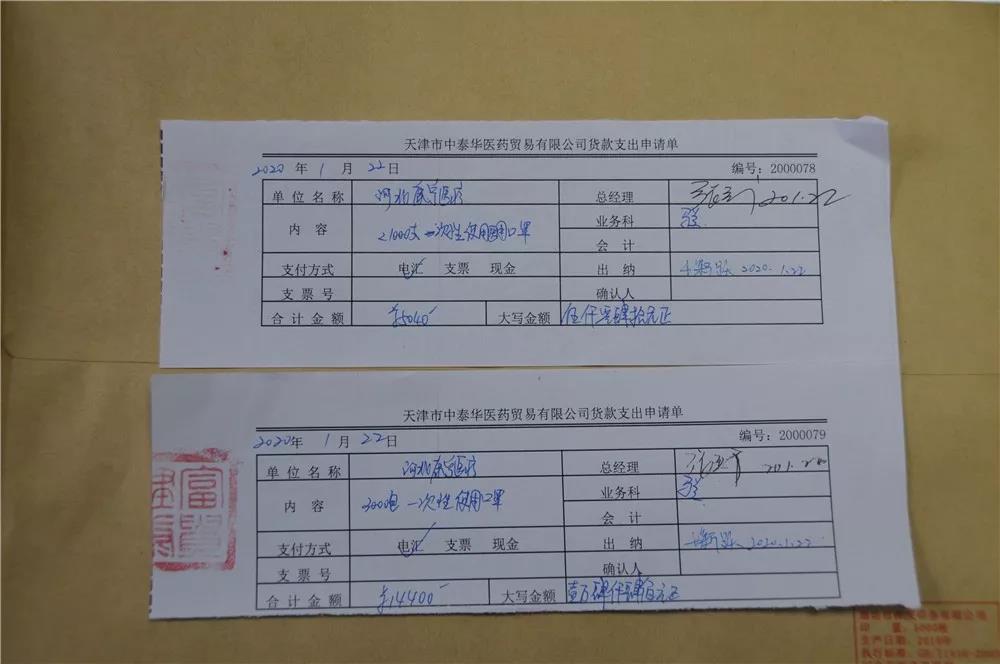 天津市中泰华医药贸易有限公司货款支出申请单
2020 年 1 月 22 日 编号：2000078
单位名称 河北康宁医疗 总经理
内容 21000支一次性使用医用口罩 业务科
会计
支付方式 电汇 支票 现金 出纳 2020.1.22
支票号 确认人
合计金额 ¥5040 大写金额 伍仟零肆拾元正
天津市中泰华医药贸易有限公司货款支出申请单
2020年 1 月 22日 编号：2000079
单位名称 河北康宁医疗 总经理
内容 一次性使用口罩 业务科
会计
支付方式 电汇 支票 现金 出纳 2020.1.22
支票号 确认人
合计金额 ¥14400 大写金额 壹万肆仟肆佰元正
富贵